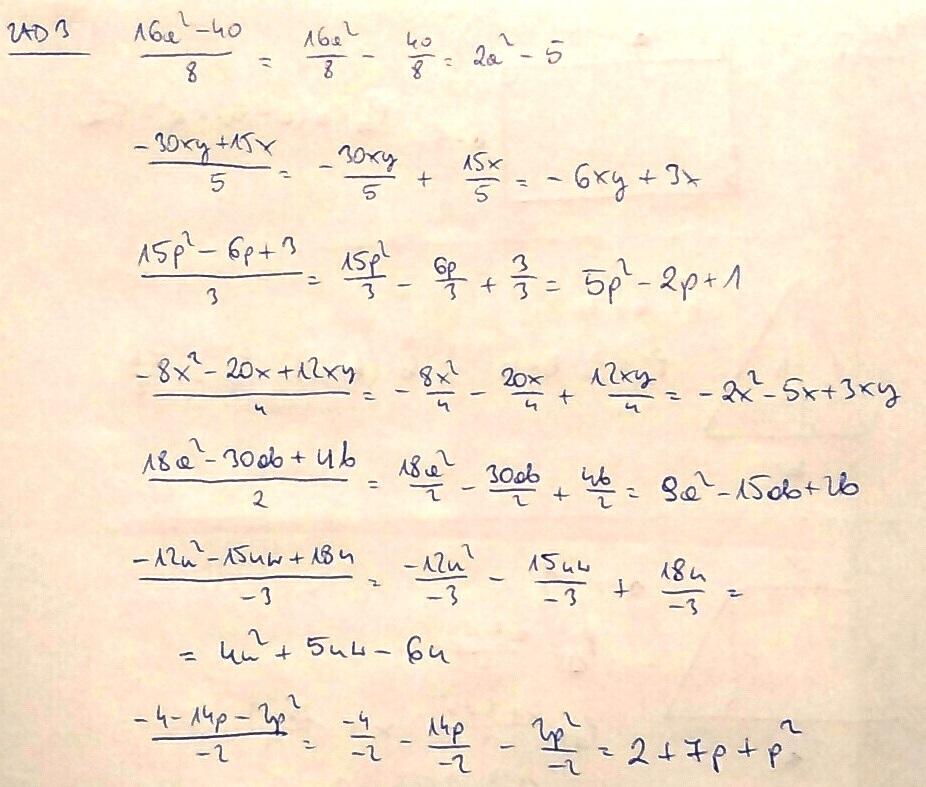 ZAD 3 (16a² - 40)/8 = 16a²/8 - 40/8 = 2a² - 5
(-30xy + 15x)/5 = -30xy/5 + 15x/5 = -6xy + 3x
(15p² - 6p + 3)/3 = 15p²/3 - 6p/3 + 3/3 = 5p² - 2p + 1
(-8x² - 20x + 12xy)/4 = -8x²/4 - 20x/4 + 12xy/4 = -2x² - 5x + 3xy
(18a² - 30ab + 4b)/2 = 18a²/2 - 30ab/2 + 4b/2 = 9a² - 15ab + 2b
(-12u² - 15uw + 18u)/-3 = -12u²/-3 - 15uw/-3 + 18u/-3 =
= 4u² + 5uw - 6u
(-4 - 14p - 2p²)/-2 = -4/-2 - 14p/-2 - 2p²/-2 = 2 + 7p + p²